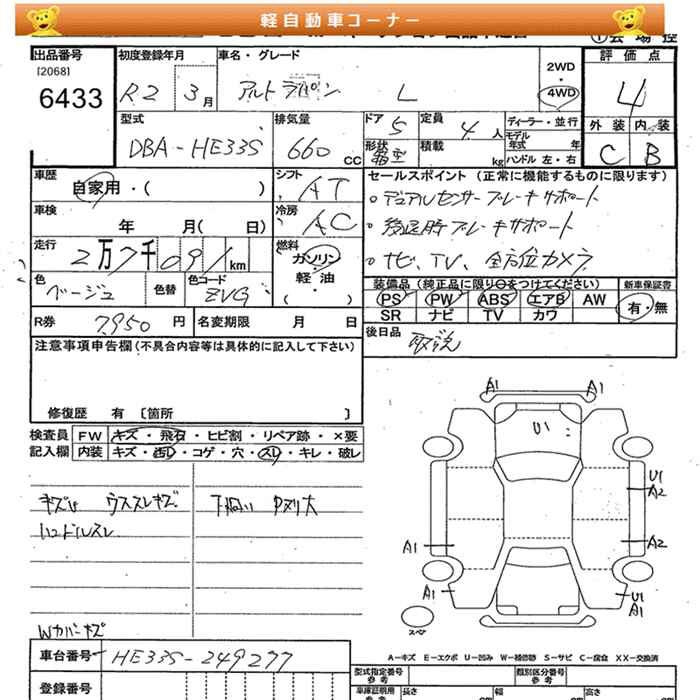 軽自動車コーナー
出品番号
[2068]
6433
初度登録年月
R2 3月
車名・グレード
アルト ラパン L
2WD
・
4WD
評価点
4
型式
DBA-HE33S
排気量
660 CC
ドア 5
定員 4 人
形状 箱型
積載 kg
ディーラー・並行
モデル年式 年
ハンドル 左・右
外装 内装
C B
車歴
自家用・( )
シフト
AT
車検
年 月( 日)
冷房
AC
走行
2万7千091km
燃料
ガソリン
軽・油
・( )
色
ベージュ
色替
色コード
ZVG
セールスポイント (正常に機能するものに限ります)
・デュアルセンサーブレーキサポート
・後退時ブレーキサポート
・ナビ、TV、全方位カメラ
装備品(純正品に限り○をつけてください)
新車保証書
PS PW ABS エアB AW
SR ナビ TV カワ
有・無
R券 7,950 円
名変期限 月 日
後日品 取説
注意事項申告欄(不具合内容等は具体的に記入して下さい)
修復歴 有 [箇所 ]
検査員記入欄
FW キズ・飛石・ヒビ割・リペア跡・×要
内装 キズ・凹・コゲ・穴・スレ・キレ・破レ
ハンドルスレ
Wカバーキズ
A1 A1
U1
U1
A2
A1 A2
A1 U1
A1
スペア
A－キズ E－エクボ U－凹み W－補修跡 S－サビ C－腐食 XX－交換済
車台番号 HE33S-249277
登録番号
型式指定番号
参考
類別区分番号
参考
車庫証明用
参考
長さ 幅 高さ